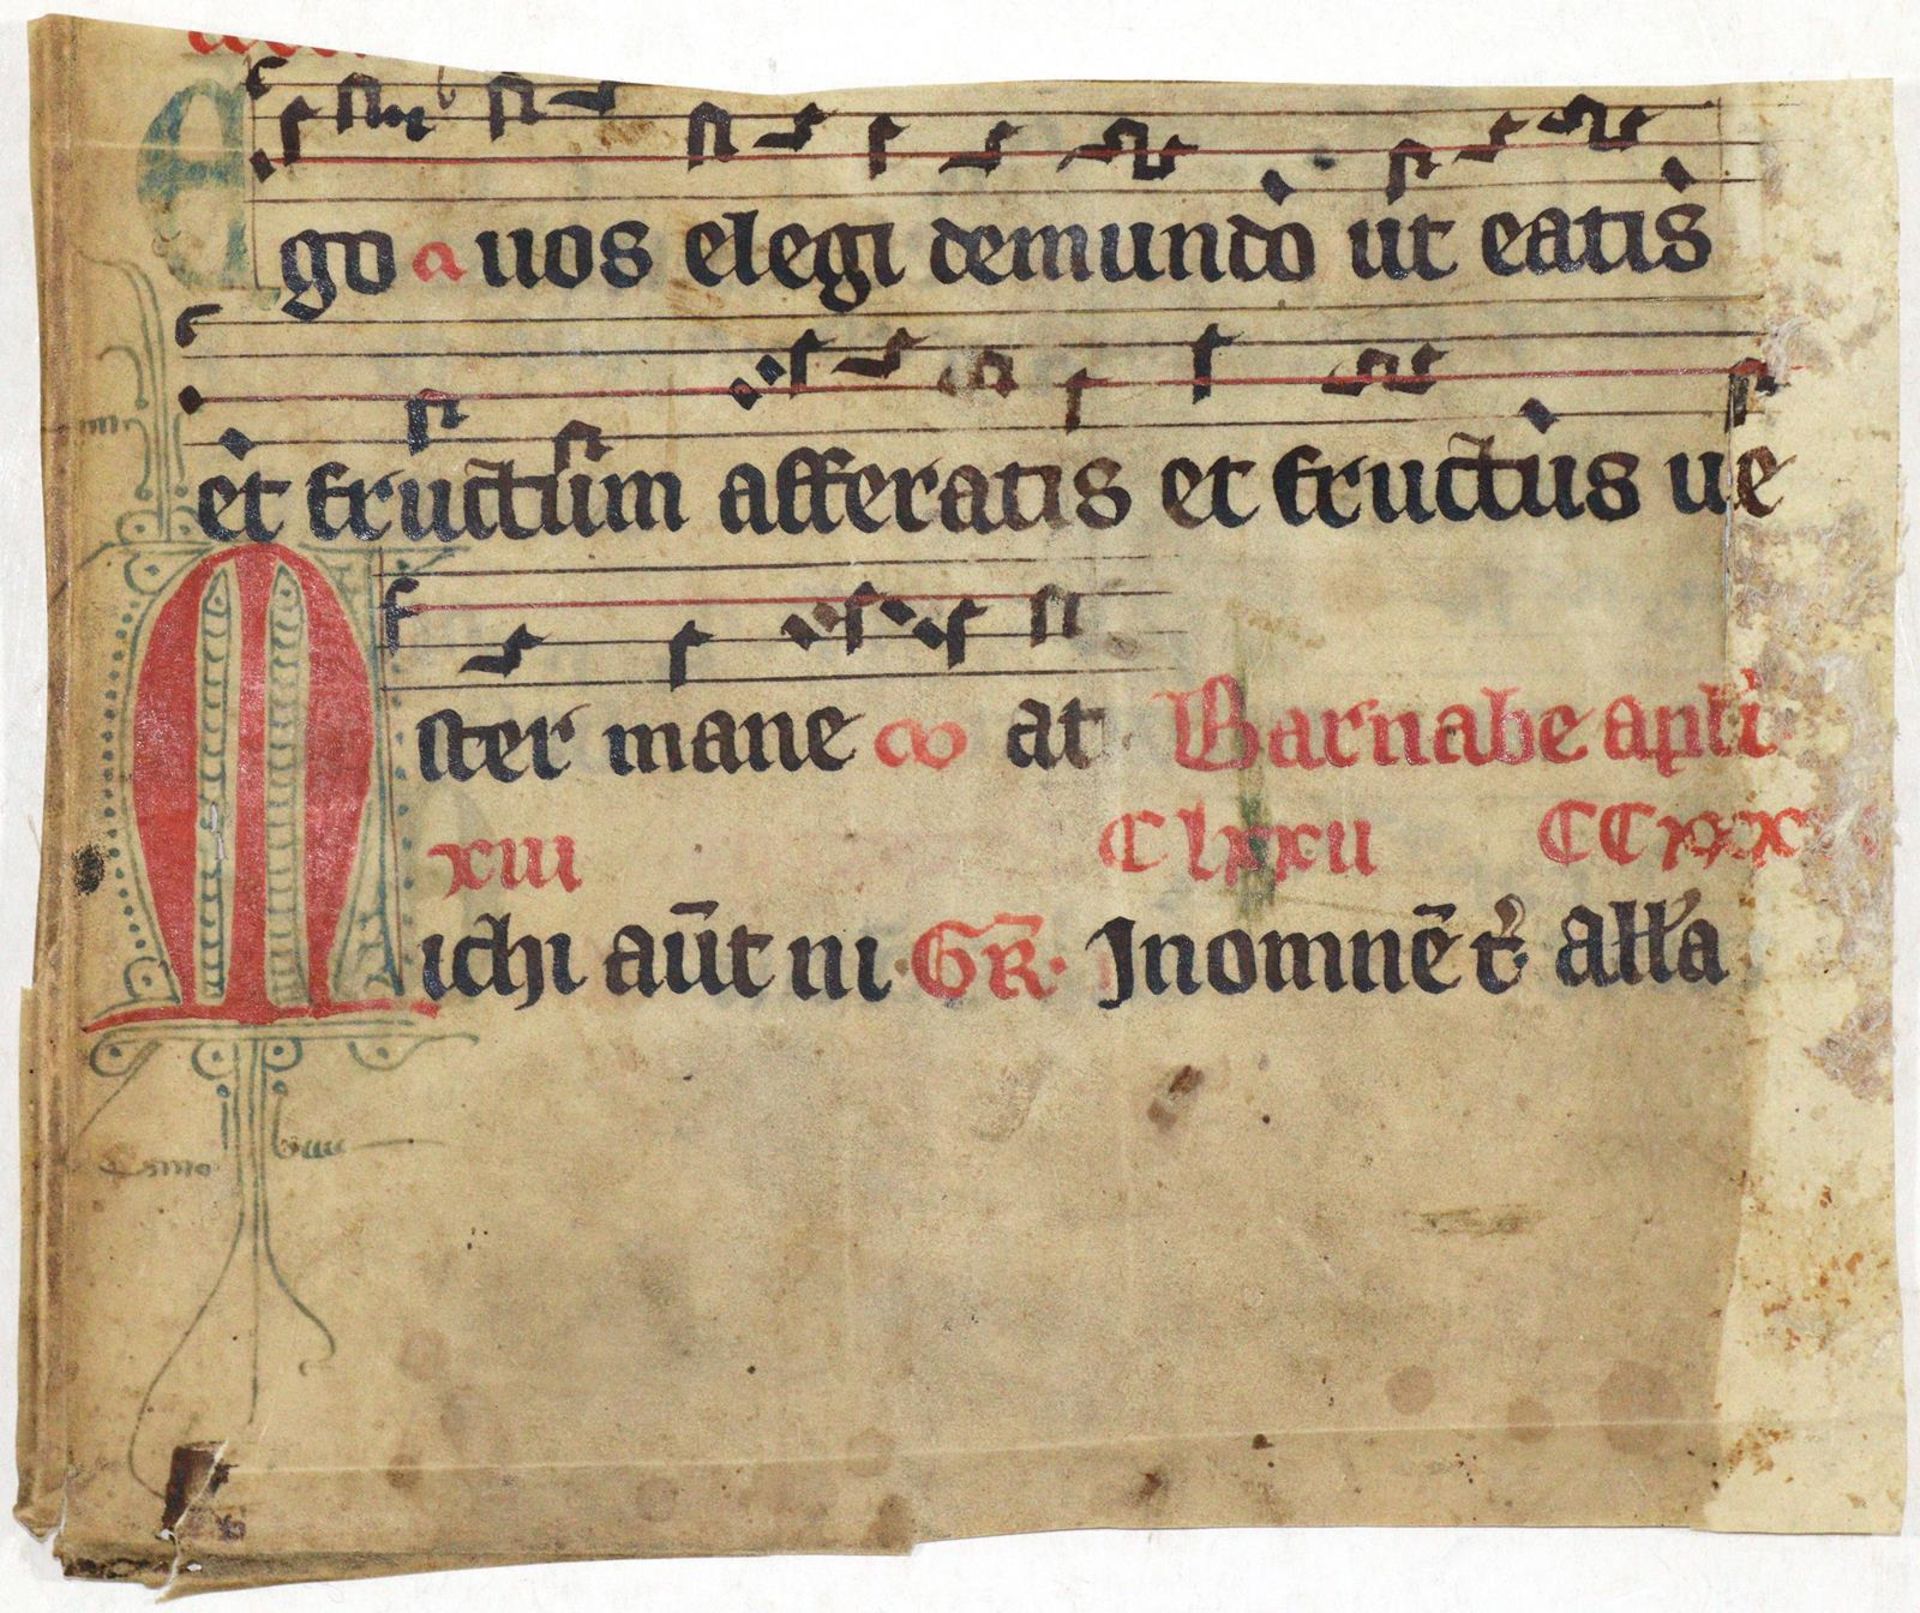 Ego uos elegi demundo ut eatis
et fructum afferatis et fructus ue
ster mane at Barnabe apli
xiii Clxxii CCxxx
Michi aūt ni GR̄ Jnomnē t̄ all'a